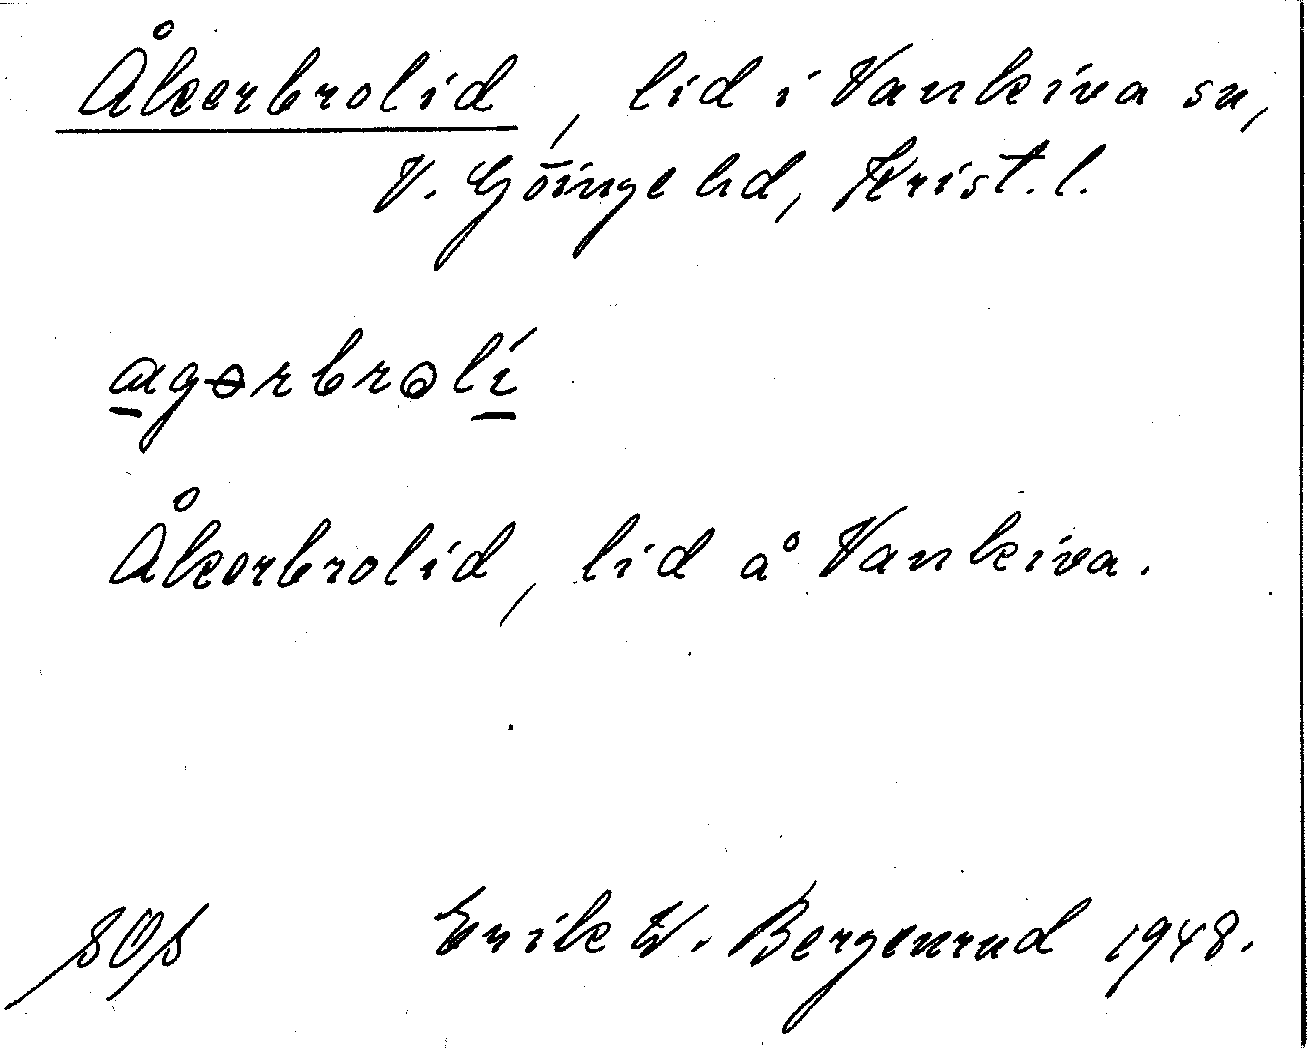 Åkerbrolid, lid i Vankiva sn,
V. Göinge hd, Krist. l.
agərbrolí
Åkerbrolid, lid å Vankiva.
Erik W. Bergenrud 1948.